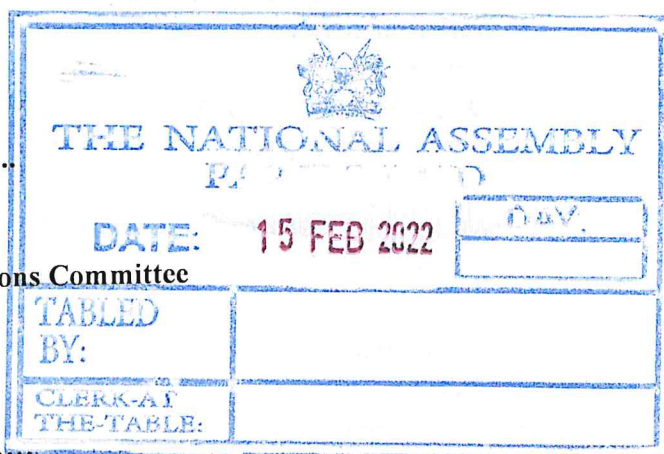 THE NATIONAL ASSEMBLY
DATE: 15 FEB 2022
DAY.
ons Committee
TABLED
BY:
CLERK-AT
THE-TABLE: